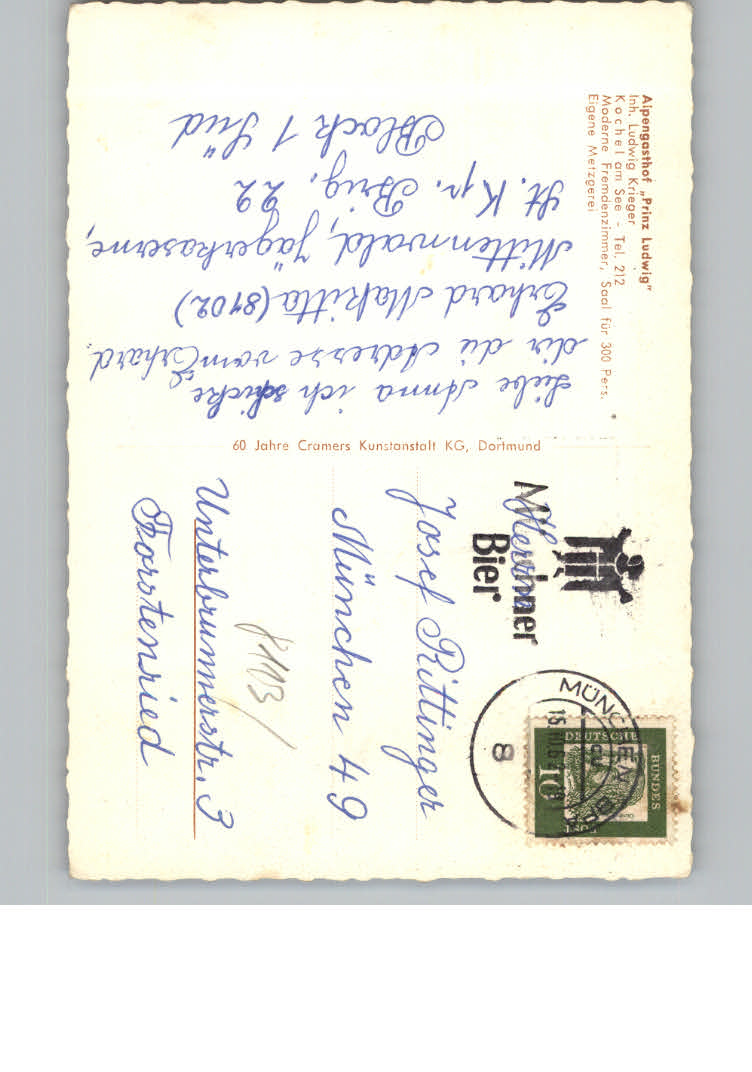 Alpengasthof „Prinz Ludwig"
Inh. Ludwig Krieger
Kochel am See - Tel. 212
Moderne Fremdenzimmer, Saal für 300 Pers.
Eigene Metzgerei
Liebe Anna ich schicke
dir die Adresse vom Erhard.
Erhard Makitta (8102)
Mittenwald, Jägerkaserne,
St. Kp. Brig. 22
Block 1 Süd
60 Jahre Cramers Kunstanstalt KG, Dortmund
Münchner
Bier
MÜNCHEN
8
DEUTSCHE
BUNDES
10
Herrn
Josef Rittinger
München 49
8103/
Unterbrunnerstr. 3
Forstenried